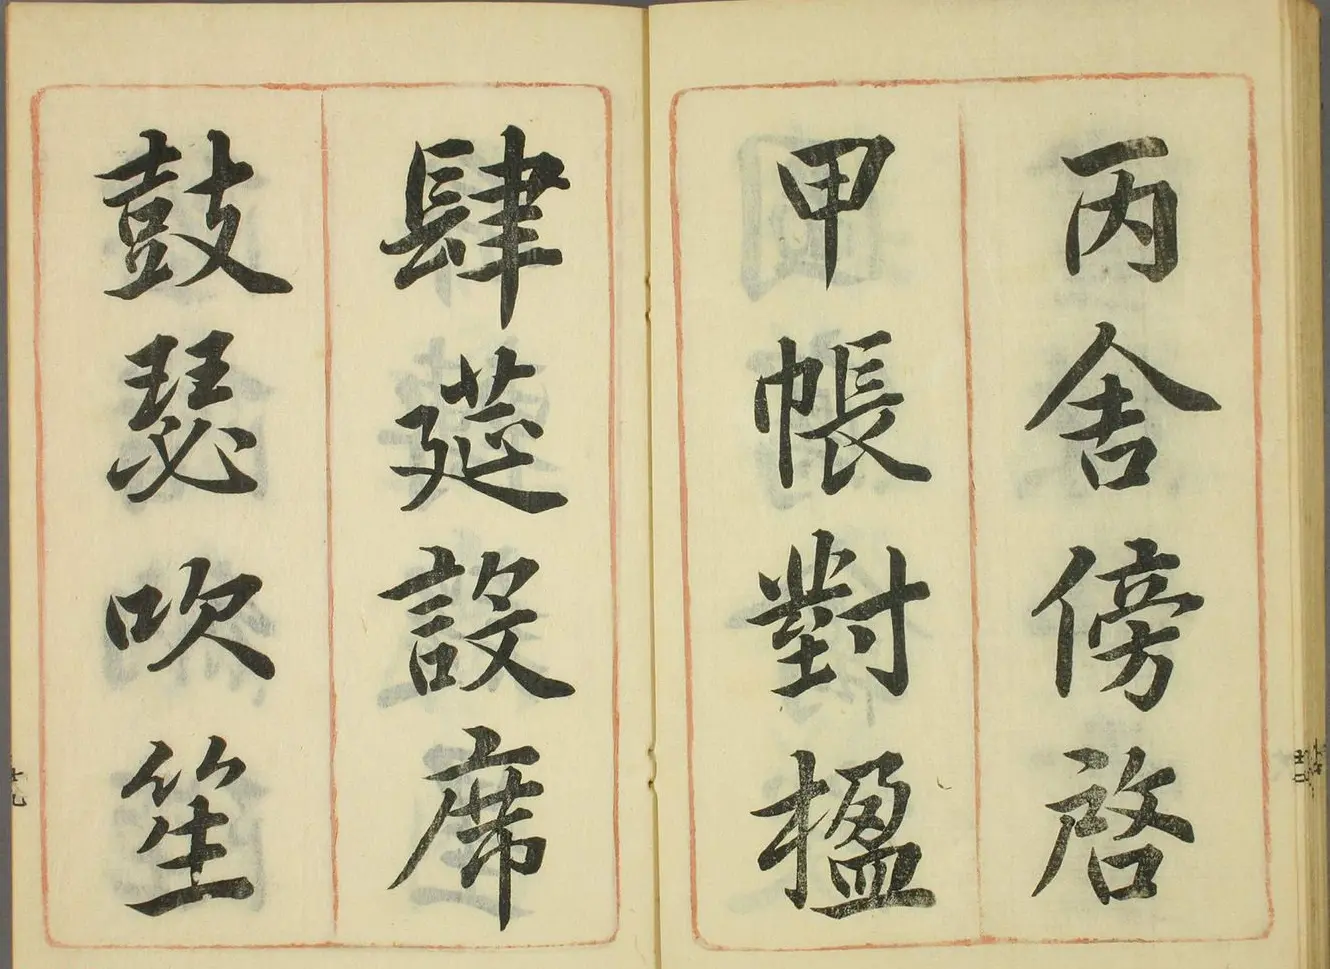 丙舍傍啓
甲帳對楹
肆莚設席
鼓瑟吹笙